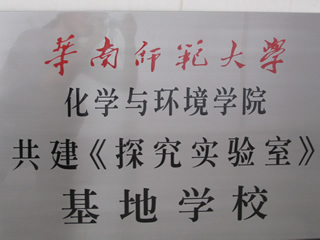 華南师範大学
化学与环境学院
共建《探究实验室》
基地学校